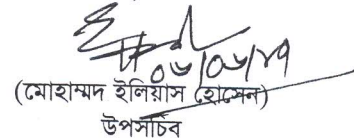 ০৬/০৬/২৭
(মোহাম্মদ ইলিয়াস হোসেন)
উপসচিব